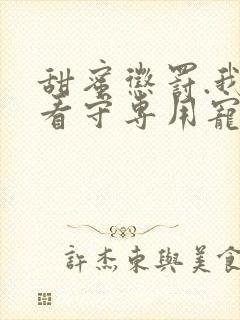 甜蜜懲罰.我
看守專用寵
許杰東與美食